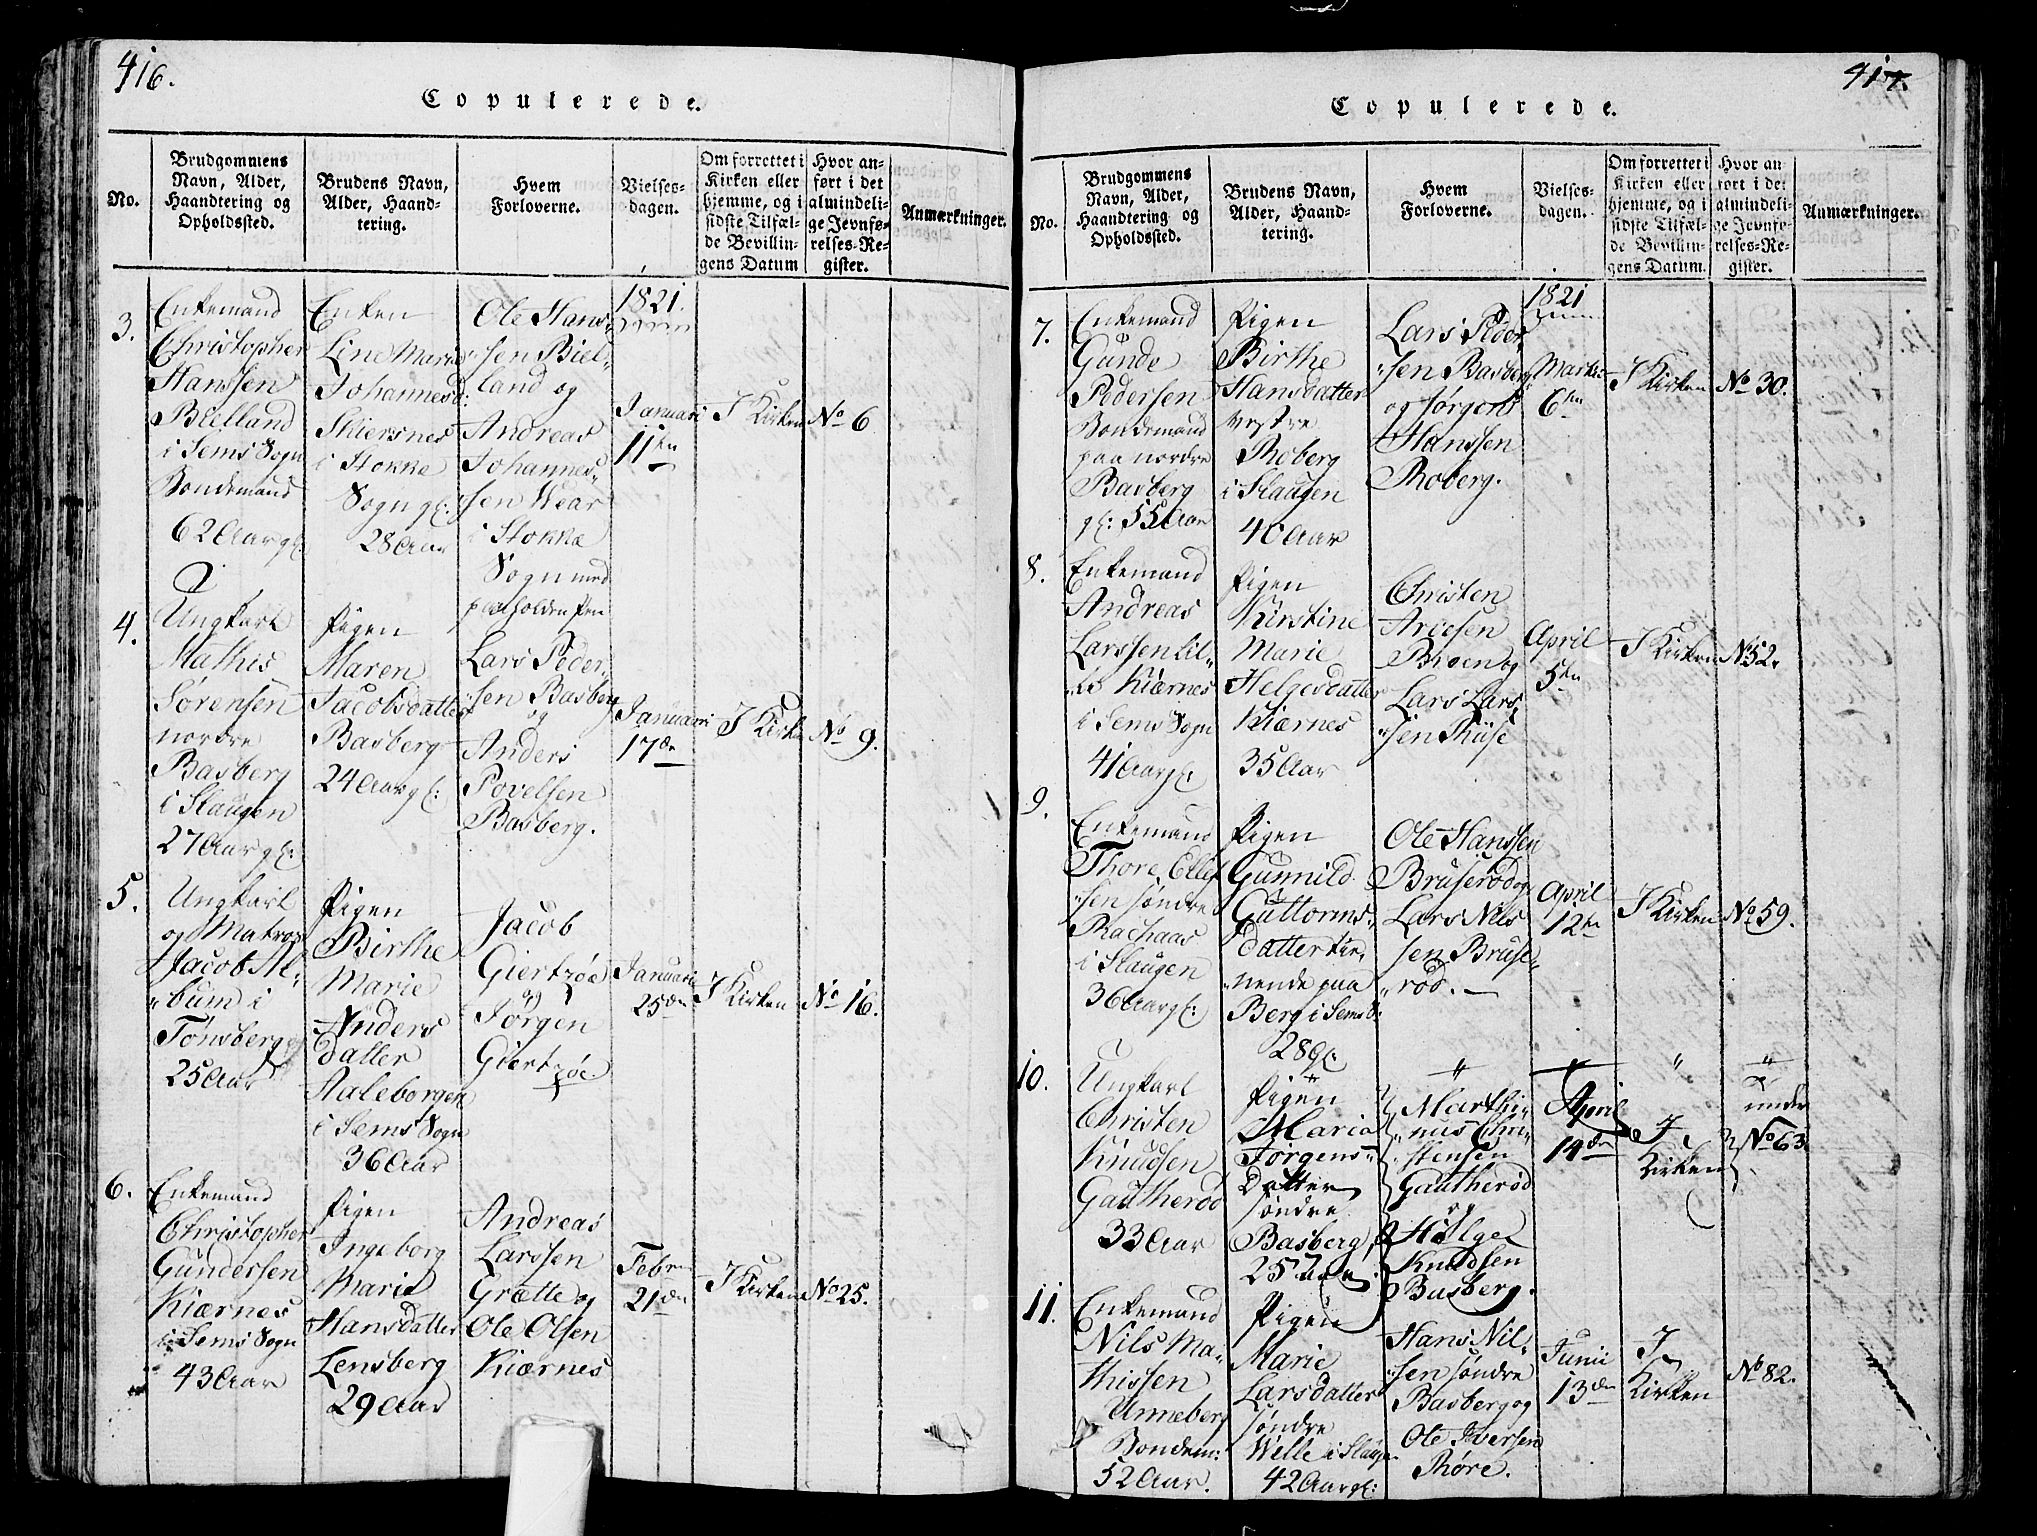 416.
Copulerede.
No.
Brudgommens
Navn, Alder,
Haandtering og
Opholdssted.
Brudens Navn,
Alder, Haand-
tering.
Hvem
Forloverne.
Vielses-
dagen.
Om forrettet i
Kirken eller
hjemme, og i
sidste Tilfæl-
de Bevillin-
gens Datum
Hvor an-
ført i det
almindeli-
ge Jevnfø-
relses-Re-
gister.
Anmærkninger.
3.
Enkemand
Christopher
Hanssen
Bielland
i Sems Sogn
Bondemand
62 Aar gl:
Enken
Line Marie
Johannesd:
Skiersnes
i Stokke
Sogn gl:
28 Aar
Ole Hans-
sen Biel-
land og
Andreas
Johannes-
sen Wear
i Stokke
Sogn med
paaholden Pen
1821.
Januari
11te
I Kirken
No 6
4.
Ungkarl
Mathis
Sørensen
nordre
Basberg
i Slaugen
27 Aar gl:
Pigen
Maren
Jacobsdatter
Basberg
24 Aar gl:
Lars Peder-
sen Basberg
og
Anders
Povelsen
Basberg.
Januari
17de
I Kirken
No 9.
5.
Ungkarl
og Matros
Jacob Al-
bum i
Tønsberg
25 Aar
Pigen
Birthe
Marie
Anders
datter
Aaleborgen
i Sems Sogn
36 Aar
Jacob
Giertzøe
og
Jørgen
Giertzøe.
Januari
25de
I Kirken
No 16.
6.
Enkemand
Christopher
Gundersen
Kiærnes
i Sems Sogn
43 Aar
Pigen
Ingeborg
Marie
Hansdatter
Lensberg
29 Aar
Andreas
Larssen
Grætte og
Ole Olsen
Kiærnes
Febr
21de
I Kirken
No 25.
417.
Copulerede.
No.
Brudgommens
Navn, Alder,
Haandtering og
Opholdssted.
Brudens Navn,
Alder, Haand-
tering.
Hvem
Forloverne.
Vielses-
dagen.
Om forrettet i
Kirken eller
hjemme, og i
sidste Tilfæl-
de Bevillin-
gens Datum.
Hvor an
ført i det
almindeli-
ge Jevnfø-
relses-Re-
gister.
Anmærkninger.
7.
Enkemand
Gunde
Pedersen
Bondemand
paa nordre
Basberg
gl: 55 Aar
Pigen
Birthe
Hansdatter
vestre
Roberg
i Slaugen
40 Aar
Lars Peder-
sen Basberg
og Jørgen
Hanssen
Roberg.
1821
Marti
6te
I Kirken
No 30.
8.
Enkemand
Andreas
Larssen lil-
le Kiærnes
i Sems Sogn
41 Aar gl:
Pigen
Kirstine
Marie
Helgesdatter
Kiærnes
35 Aar
Christen
Arvesen
Broen og
Lars Lars-
sen Ruse
April
5te
I Kirken
No 52.
9.
Enkemand
Thore Ellef
sen søndre
Rachaas
i Slaugen
36 Aar gl:
Pigen
Gunnild
Guttorms-
datter tie-
nende paa
Berg i Sems S:
28 gl:
Ole Hanssen
Bruserød og
Lars Nils
sen Bruse-
rød.
April
12te
I Kirken
No 59.
10.
Ungkarl
Christen
Knudsen
Gautherød
33 Aar
Pigen
Maria
Jørgens-
Datter
søndre
Basberg,
25 Aar
Marthi-
nus Chri-
stensen
Gautherød
og
Helge
Knudsen
Basberg.
April
14de
I
Kirken
under
No 63
11.
Enkemand
Nils Ma-
thissen
Unneberg
Bondem:
52 Aar.
Pigen
Marie
Larsdatter
søndre
Welle i Slauge
42 Aar gl:
Hans Nil-
sen søndre
Basberg og
Ole Iversen
Røre.
Junii
13de
I
Kirken
No 82.